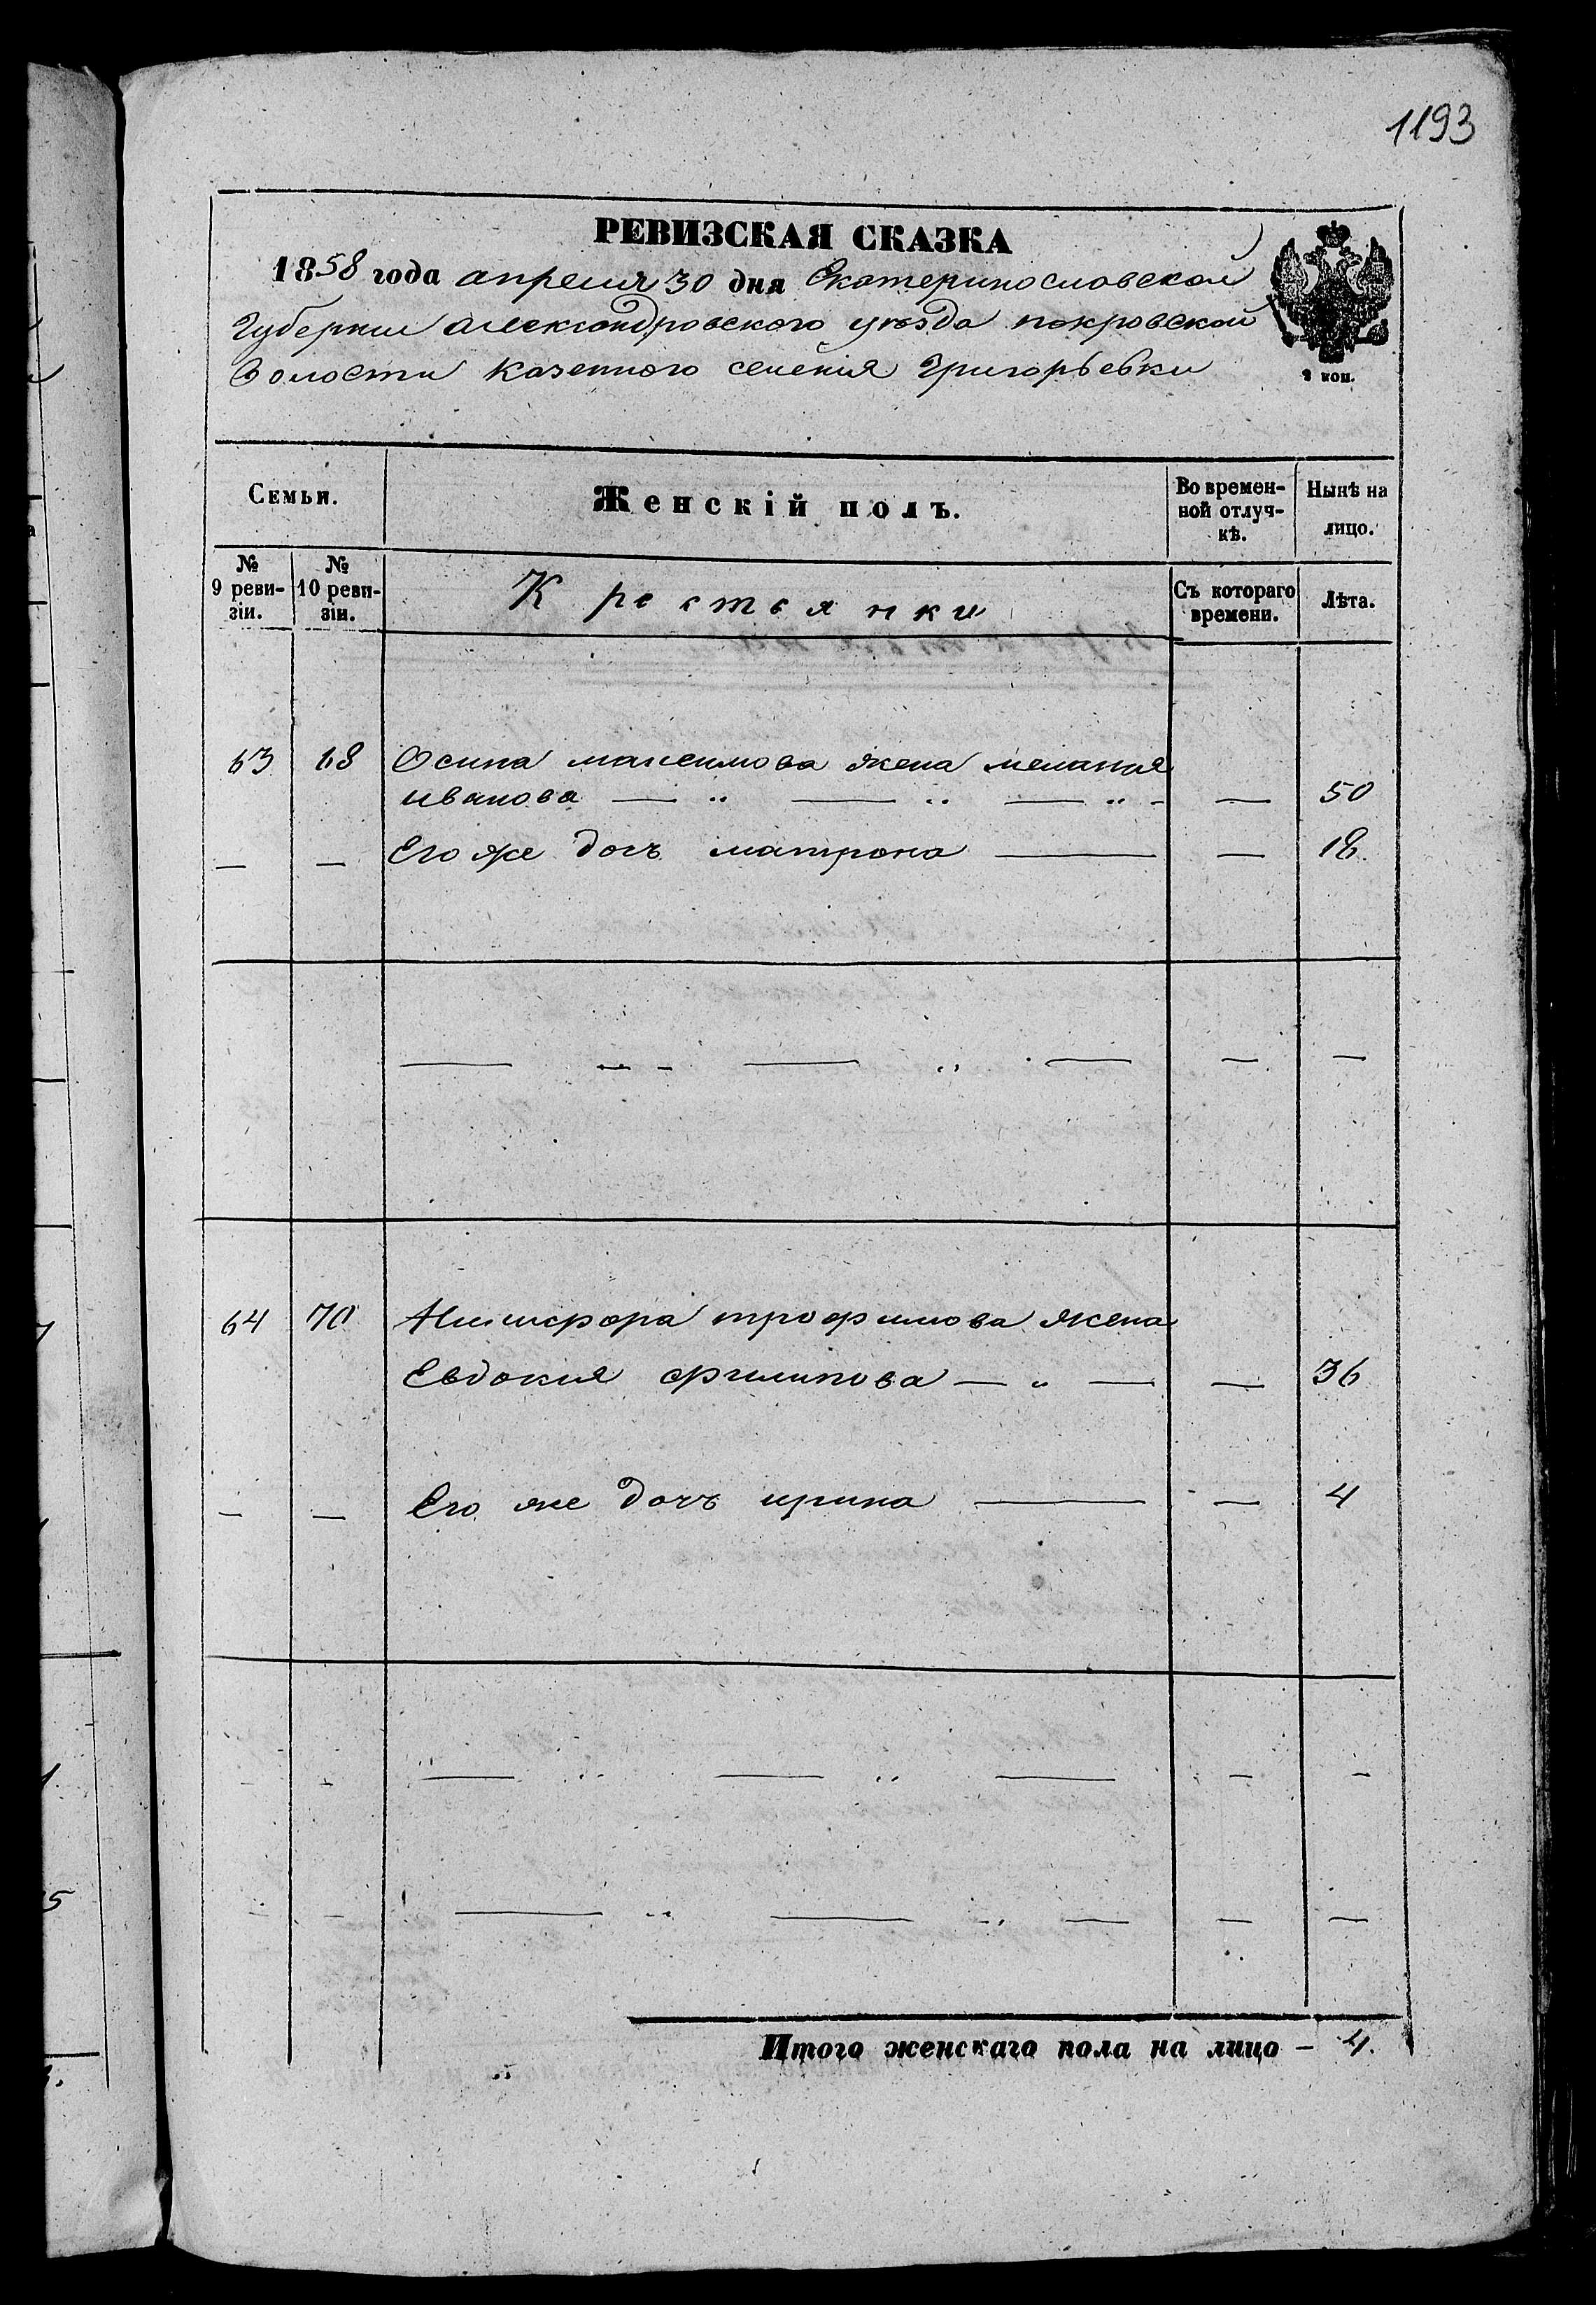 1193
РЕВИЗСКАЯ СКАЗКА
1858 года апреля 30 дня Екатеринославской
Губернии Александровского уѣзда покровской
Волости казенного селенія Григорьевки
2 коп.
Семьи.
Женскій полъ.
Во времен-
ной отлуч-
кѣ.
Нынѣ на
лицо.
№
9 реви-
зіи.
№
10 реви-
зіи.
Крестьянки
Съ котораго
времени.
Лѣта.
63 68 Осипа максимова жена мелания
иванова — „ — „ — „ - — 50
— — Его же дочь матрона — — 18.
— - - — „ — — —
64 70 трофимова жена
Евдокия филипова — „ — — 36
— — Его же дочь ирина — — 4
- - — „ — „ — - -
- - — „ — „ — — —
Итого женскаго пола на лицо - 4.